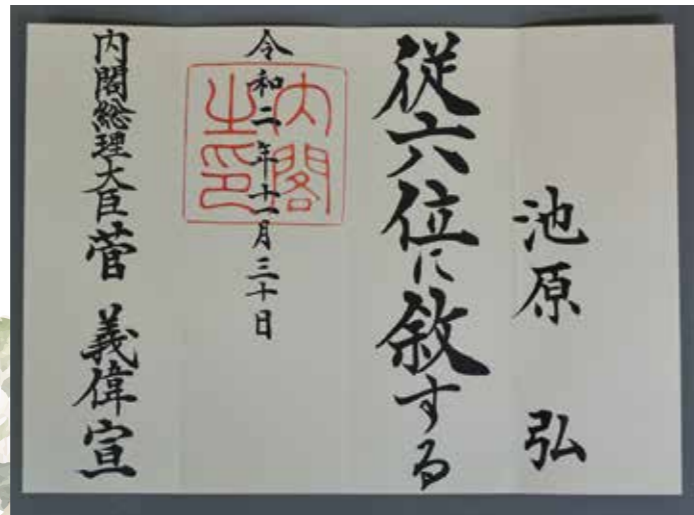 池原 弘
従六位に叙する
令和二年十一月三十日
内閣之印
内閣総理大臣菅 義偉宣